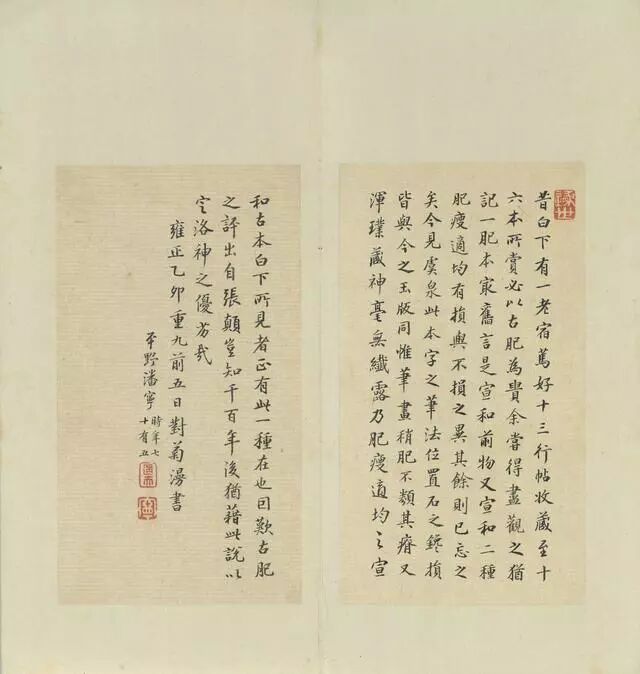 昔白下有一老宿篤好十三行帖收蔵至十
六本所賞必以古肥為貴余嘗得盡觀之猶
記一肥本家舊言是宣和前物又宣和二種
肥瘦適均有損與不損之異其餘則已忘之
矣今見虞泉此本字之筆法位置石之鑱損
皆與今之玉版同惟筆畫稍肥不類其瘠又
渾璞蔵神毫無纖露乃肥瘦適均之宣
和古本白下所見者正有此一種在也因歎古肥
之評出自張顛豈知千百年後猶藉此說以
定洛神之優劣哉
雍正乙卯重九前五日對菊漫書
平野潘寧
時年七
十有五